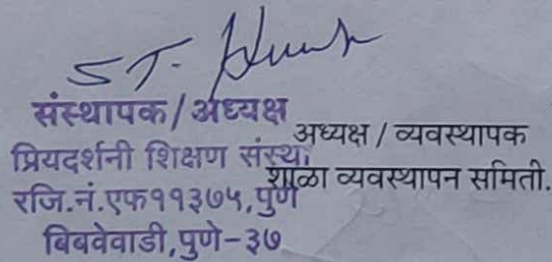 S T.
संस्थापक / अध्यक्ष
प्रियदर्शनी शिक्षण संस्था
रजि.नं.एफ११३७५, पुणे
बिबवेवाडी, पुणे-३७
अध्यक्ष / व्यवस्थापक
शाळा व्यवस्थापन समिती.